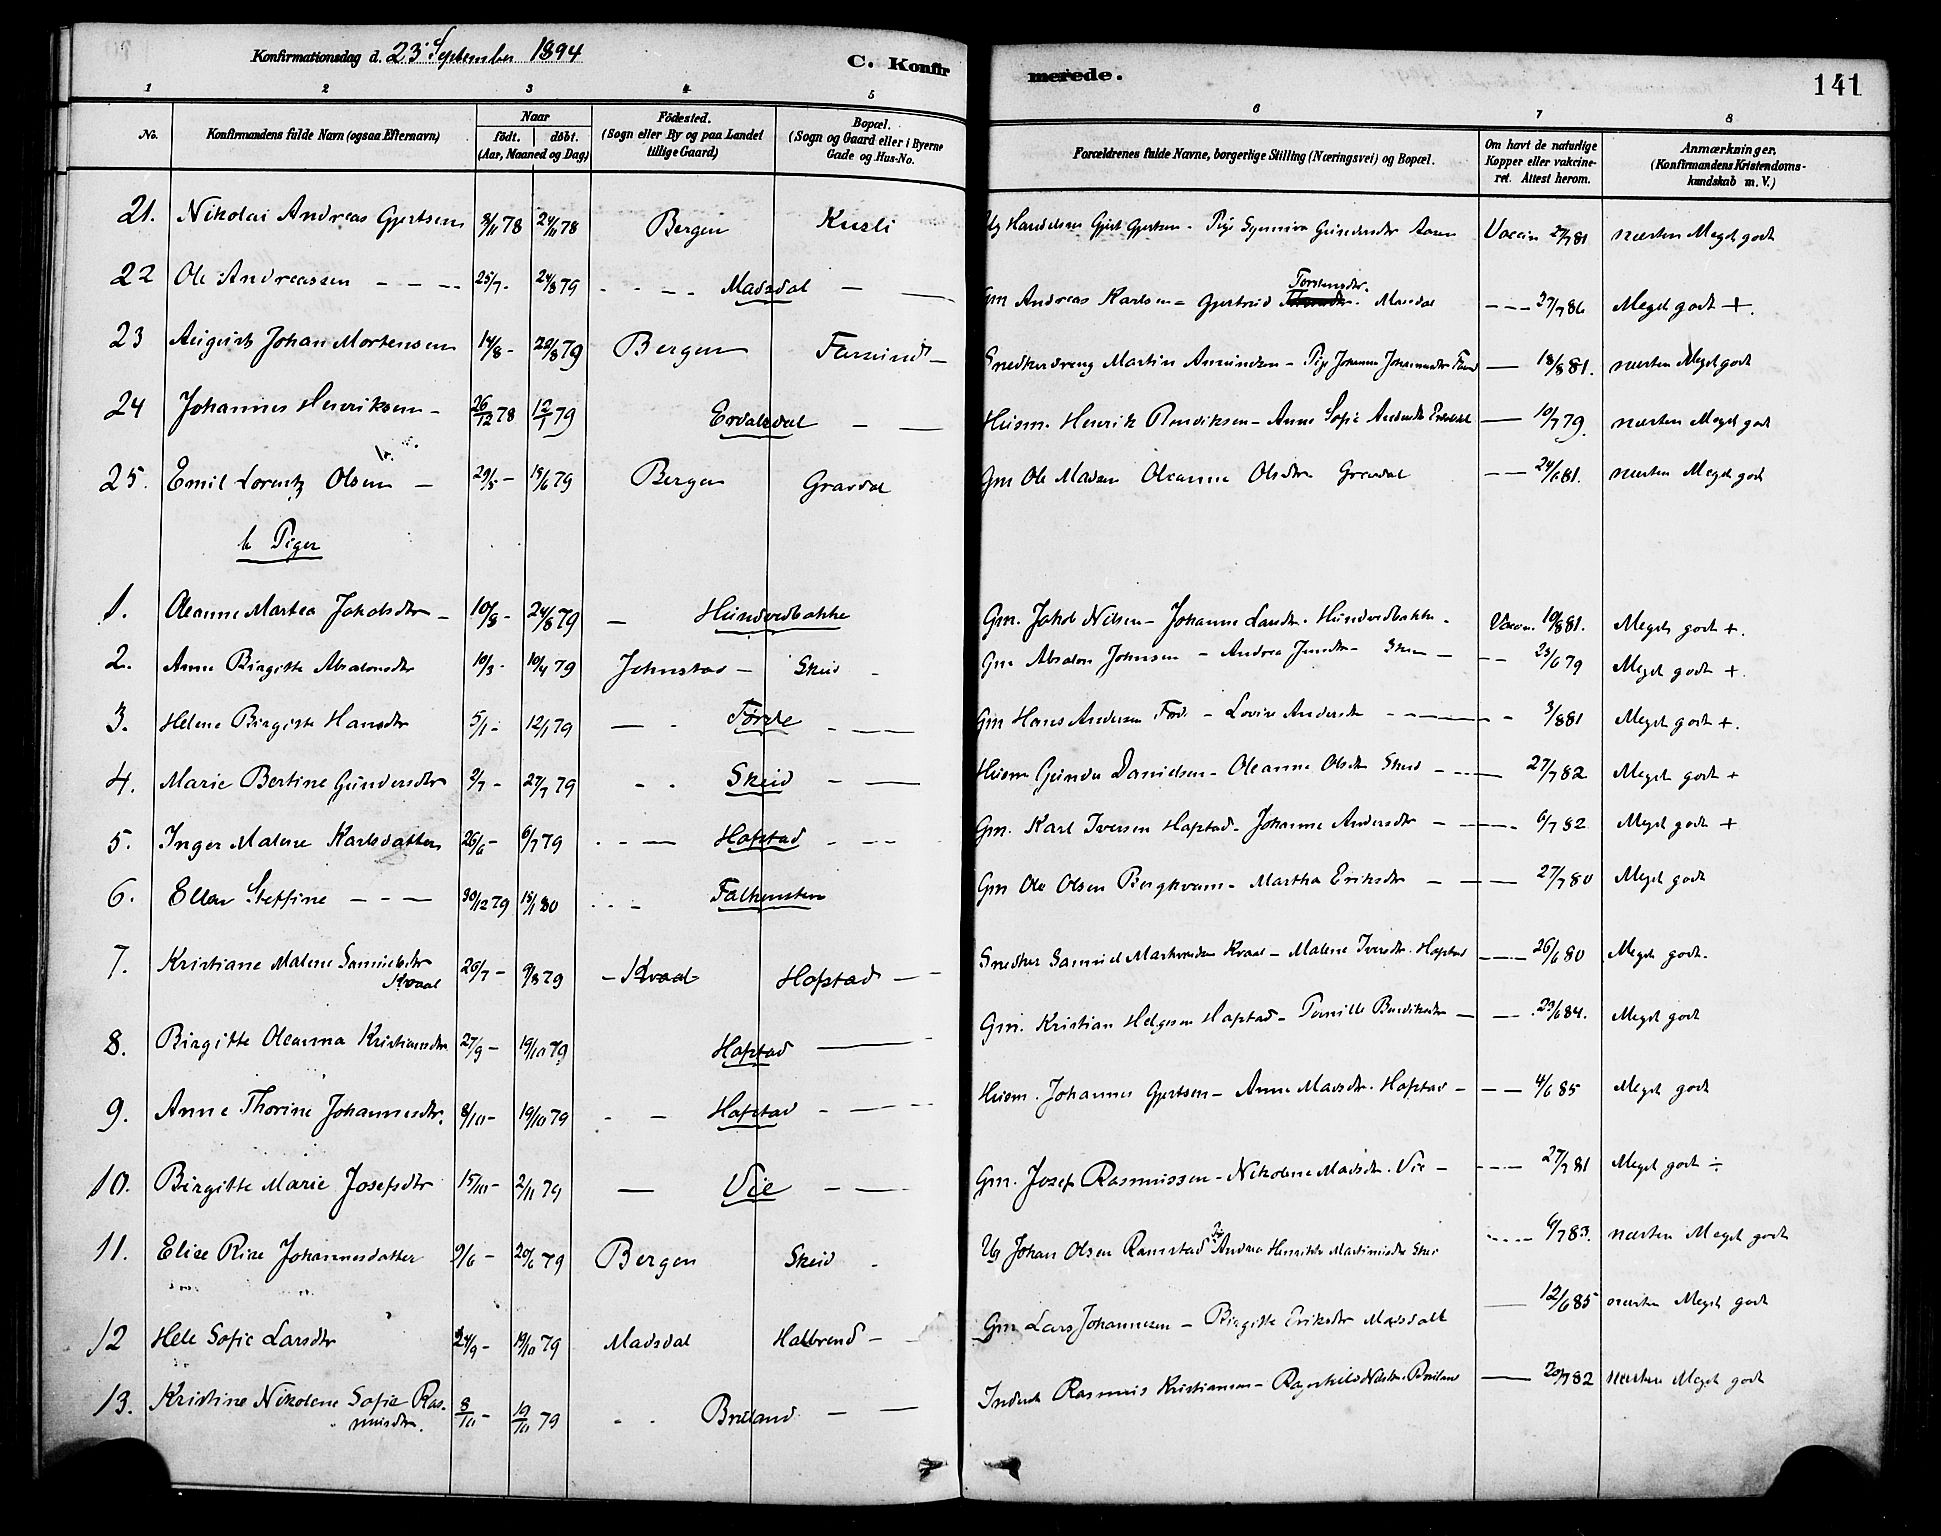 Konfirmationsdag d. 23 September 1894
C. Konfirmerede.
141
1 2 3 4 5 6 7 8
No.
Konfirmandens fulde Navn (ogsaa Efternavn)
Naar
födt. döbt.
(Aar, Maaned og Dag)
Födested.
(Sogn eller By og paa Landet
tillige Gaard)
Bopæl.
(Sogn og Gaard eller i Byerne
Gade og Hus-No.
Forældrenes fulde Navne, borgerlige Stilling (Næringsvei) og Bopæl.
Om havt de naturlige
Kopper eller vakcine-
ret. Attest herom.
Anmærkninger.
(Konfirmandens Kristendoms-
kundskab m. V.)
21. Nikolai Andreas Gjertsen 8/11 78 24/11 78 Bergen Kusli Ug Gjert Gjertsen - Pige Vaccin 81 næsten Meget godt
22 Ole Andreassen - - - 25/7 - 24/8 79 - - - - Madsdal - - Gm Andreas Karlsen - Gjertrud Torstensdtr. Masdal - - - 27/7 86 Meget godt +.
23 August Johan Mortensen 14/8 - 79 Bergen - Snedkerdreng Martin Amundsen - Pige Johanne Johannesdtr - 18/8 81. næsten Meget godt
24 Johannes Henriksen - 26/12 78 12/1 79 Erdalsdal - - Husm. Henrik - Anne Sofie - 10/7 79. næsten Meget godt
25. Emil Lorentz Olsen - 29/5 - 15/6 79 Bergen Gravdal Gm Ole Madsen Oleanne Olsdtr Gravdal - - 24/6 81. næsten Meget godt
b Piger
1. Oleanne Martea Jakobsdtr - 10/8 - 24/8 79 - Hundvedbakke Gm. Jakob Nilsen - Johanne Larsdtr. Hundvedbakke - Vaccin. 10/8 81. Meget godt +.
2. Anne Birgitte Absalonsdtr 10/3 - 10/4 79 Johnstad - Skeid - Gm Absalon Johnsen - Andrea - - - 23/6 79 Meget godt +.
3. Helene Birgitte Hansdtr 5/1 - 12/1 79 - - Førde - - - Gm Hans Andersen Førde - Lovise Andersdtr - - - - - 3/8 81 Meget godt +.
4. Marie Bertine Gundersdtr 2/7 - 27/7 79 - - Skeid - - Husm Gunder Danielsen - Oleanne Olsdtr Skeid - - - 27/7 82 Meget godt +
5. Inger Malene Karlsdatter 26/6 - 6/7 79 - - - Hafstad - - - Gm. Karl Iversen Hafstad - Johanne Andersdtr - - - 6/7 82 Meget godt +
6. Ellen Steffine - - - 30/12 79 15/1 80 - - - Falkensten Gm Ole Olsen Bergkvam - Martha Eriksdtr - - - 27/7 80 Meget godt
7. Kristiane Malene Samuelsdtr
Kvaal 20/7 - 9/8 79 - Kvaal Hafstad - - Snedker Samuel Kvaal - Malene Iversdtr. Hafstad - - - 26/6 80 Meget godt.
8. Birgitte Oleanna Kristiansdtr 27/9 - 19/10 79 Hafstad - Gm. Kristian Helgesen Hafstad - Pernille Bendiksdtr - - - 23/6 84. Meget godt
9. Anne Thorine Johannesdtr. 8/10 - 19/10 79 - - Hafstad - - - Husm. Johannes Gjertsen - Anne Madsdtr. Hafstad - - - 4/6 85 Meget godt
10. Birgitte Marie Josefsdtr 15/10 - 2/11 79 - Vie - - Gm. Josef Rasmussen - Nikoline Madsdtr. Vie - - - - 27/7 81 Meget godt ÷
11. Elise Rise Johannesdatter 9/6 - 20/6 79 Bergen Skeid - Ug Johan Olsen Ramstad Pige Andrea Henrikke - - - - 6/7 83. næsten Meget godt
12 Hele Sofie Larsdtr 24/9 - 19/10 79 Madsdal Halbrend - - Gm Lars Johannesen - Birgitte Eriksdtr Madsdall - 12/6 85 næsten Meget godt
13. Kristine Nikoline Sofie Ras-
musdtr. 8/10 - 19/10 79 - - Breland - - Inderst Rasmus Kristiansen - Ragnhild - 20/7 82 næsten Meget godt